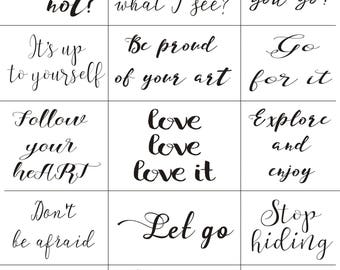 not?
what I see?
you go?
It's up
to yourself
Be proud
of your art
Go
for it
Follow
your
heART
love
love
love it
Explore
and
enjoy
Don't
be afraid
Let go
Stop
hiding